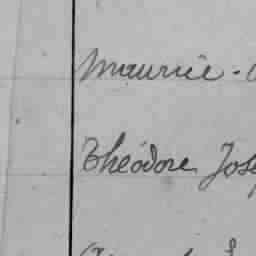 Maurice -
Théodore Jose